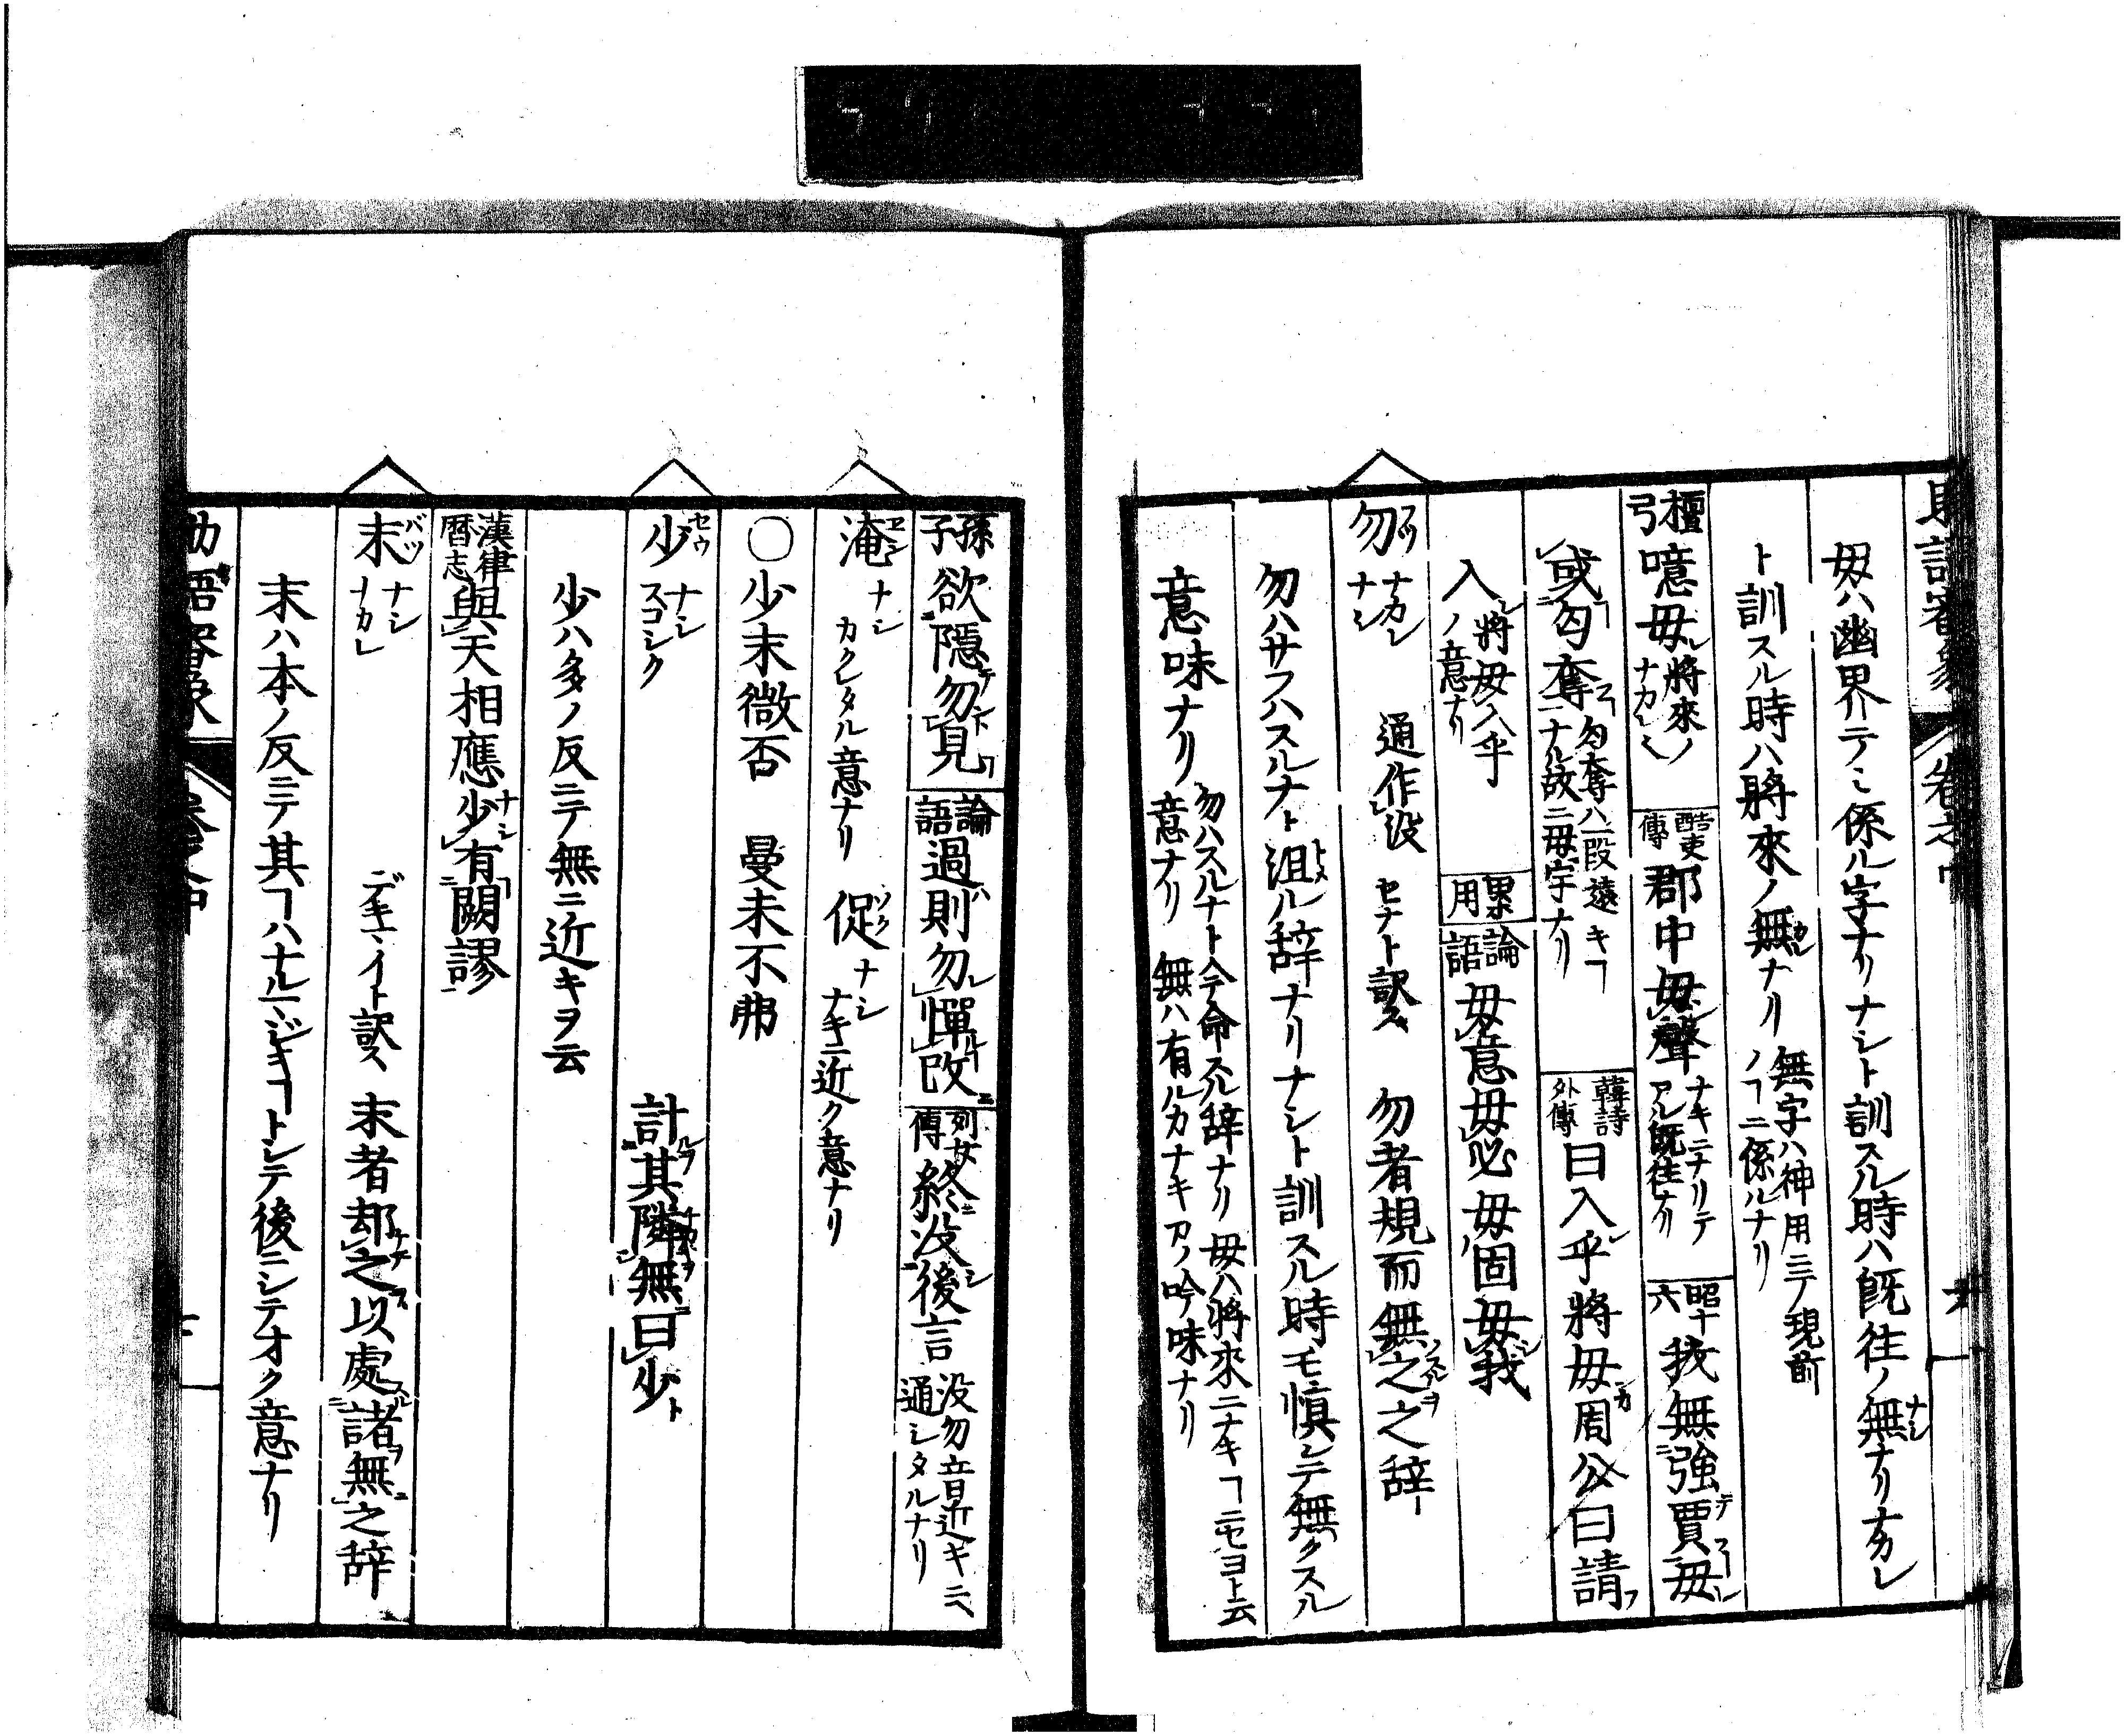 助語審象 卷之中
毋ハ幽界テミ係ル字ナリナシト訓スル時ハ既往ノ無ナリナカレ
ト訓スル時ハ將來ノ無ナリ 無字ハ神用ニテ現前ノヿニ係ルナリ
檀弓 噫毋 將來ノナカレ 酷吏傳 郡中毋聲 ナキニナリテアル既往ナリ 昭十六 我無強賈毋
或匃奪 匃奪ハ一段遠キヿナル故ニ毋字ナリ 韓詩外傳 曰入乎將毋周公曰請
入 將毋入乎ノ意ナリ 累用 論語 毋意毋必毋固毋我
勿 ナカレ ナシ 通作沒 セナト訳ス 勿者規而無之之辞
勿ハサフハスルナト沮ル辞ナリナシト訓スル時モ慎シテ無クスル
意味ナリ 勿ハスルナト今命スル辞ナリ毋ハ將來ニナキヿニセヨト云意ナリ 無ハ有ルカナキアノ吟味ナリ
孫子 欲隱勿見 論語 過則勿憚改 列女傳 終沒後言 沒勿音近キニヘ通シタルナリ
淹 ナシ カクレタル意ナリ 促 ナシ ナキニ近ク意ナリ
〇少末微否 曼未不弗
少 セウ ナシ スコシク 計其隣無曰少
少ハ多ノ反ニテ無ニ近キヲ云
漢律曆志 與天相應少有闕謬
末 バツ ナシ ナカレ デキナイト訳ス 末者却之以處諸無之辞
末ハ本ノ反ニテ其ヿハナルマジキヿトシテ後ニシテオク意ナリ
助語審象 卷之中